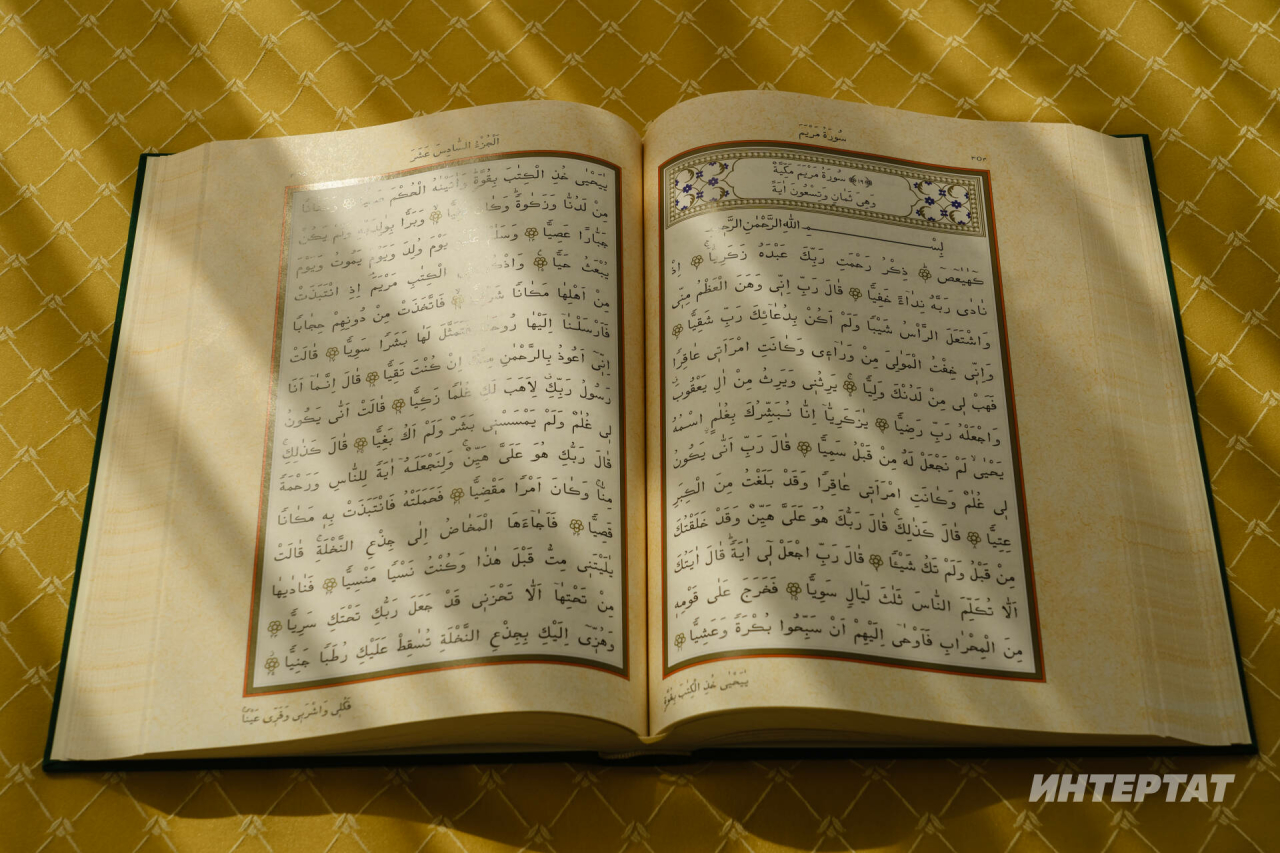 سُورَةُ مَرْيَمَ
﴿١٩﴾ سُورَةُ مَرْيَمَ مَكِّيَّةٌ
وَهِيَ ثَمَانٍ وَتِسْعُونَ اٰيَةً
بِسْمِ اللّٰهِ الرَّحْمٰنِ الرَّحِيمِ
كٓهٰيٰعٓصٓ ذِكْرُ رَحْمَتِ رَبِّكَ عَبْدَهُ زَكَرِيَّا اِذْ
نَادٰى رَبَّهُ نِدَٓاءً خَفِيًّا قَالَ رَبِّ اِنّٖى وَهَنَ الْعَظْمُ مِنّٖى
وَاشْتَعَلَ الرَّأْسُ شَيْبًا وَلَمْ اَكُنْ بِدُعَٓائِكَ رَبِّ شَقِيًّا
وَاِنّٖى خِفْتُ الْمَوَالِىَ مِنْ وَرَٓاءٖى وَكَانَتِ امْرَاَتٖى عَاقِرًا
فَهَبْ لٖى مِنْ لَدُنْكَ وَلِيًّا يَرِثُنٖى وَيَرِثُ مِنْ اٰلِ يَعْقُوبَ
وَاجْعَلْهُ رَبِّ رَضِيًّا يَا زَكَرِيَّٓا اِنَّا نُبَشِّرُكَ بِغُلَامٍ اسْمُهُ
يَحْيٰى لَمْ نَجْعَلْ لَهُ مِنْ قَبْلُ سَمِيًّا قَالَ رَبِّ اَنّٰى يَكُونُ
لٖى غُلَامٌ وَكَانَتِ امْرَاَتٖى عَاقِرًا وَقَدْ بَلَغْتُ مِنَ الْكِبَرِ
عِتِيًّا قَالَ كَذٰلِكَ قَالَ رَبُّكَ هُوَ عَلَىَّ هَيِّنٌ وَقَدْ خَلَقْتُكَ
مِنْ قَبْلُ وَلَمْ تَكُ شَيْئًا قَالَ رَبِّ اجْعَلْ لٖٓى اٰيَةً قَالَ اٰيَتُكَ
اَلَّا تُكَلِّمَ النَّاسَ ثَلٰثَ لَيَالٍ سَوِيًّا فَخَرَجَ عَلٰى قَوْمِهٖ
مِنَ الْمِحْرَابِ فَاَوْحٰٓى اِلَيْهِمْ اَنْ سَبِّحُوا بُكْرَةً وَعَشِيًّا
يَا يَحْيٰى خُذِ الْكِتَابَ بِقُوَّةٍ
اَلْجُزْءُ السَّادِسَ عَشَرَ
يَا يَحْيٰى خُذِ الْكِتَابَ بِقُوَّةٍ وَاٰتَيْنَاهُ الْحُكْمَ صَبِيًّا وَحَنَانًا
مِنْ لَدُنَّا وَزَكٰوةً وَكَانَ تَقِيًّا وَبَرًّا بِوَالِدَيْهِ وَلَمْ يَكُنْ
جَبَّارًا عَصِيًّا وَسَلَامٌ عَلَيْهِ يَوْمَ وُلِدَ وَيَوْمَ يَمُوتُ وَيَوْمَ
يُبْعَثُ حَيًّا وَاذْكُرْ فِى الْكِتَابِ مَرْيَمَ اِذِ انْتَبَذَتْ
مِنْ اَهْلِهَا مَكَانًا شَرْقِيًّا فَاتَّخَذَتْ مِنْ دُونِهِمْ حِجَابًا
فَاَرْسَلْنَٓا اِلَيْهَا رُوحَنَا فَتَمَثَّلَ لَهَا بَشَرًا سَوِيًّا قَالَتْ
اِنّٖٓى اَعُوذُ بِالرَّحْمٰنِ مِنْكَ اِنْ كُنْتَ تَقِيًّا قَالَ اِنَّمَٓا اَنَا
رَسُولُ رَبِّكِ لِاَهَبَ لَكِ غُلَامًا زَكِيًّا قَالَتْ اَنّٰى يَكُونُ
لٖى غُلَامٌ وَلَمْ يَمْسَسْنٖى بَشَرٌ وَلَمْ اَكُ بَغِيًّا قَالَ كَذٰلِكِ
قَالَ رَبُّكِ هُوَ عَلَىَّ هَيِّنٌ وَلِنَجْعَلَهُٓ اٰيَةً لِلنَّاسِ وَرَحْمَةً
مِنَّا وَكَانَ اَمْرًا مَقْضِيًّا فَحَمَلَتْهُ فَانْتَبَذَتْ بِهٖ مَكَانًا
قَصِيًّا فَاَجَٓاءَهَا الْمَخَاضُ اِلٰى جِذْعِ النَّخْلَةِ قَالَتْ
يَا لَيْتَنٖى مِتُّ قَبْلَ هٰذَا وَكُنْتُ نَسْيًا مَنْسِيًّا فَنَادٰيهَا
مِنْ تَحْتِهَٓا اَلَّا تَحْزَنٖى قَدْ جَعَلَ رَبُّكِ تَحْتَكِ سَرِيًّا
وَهُزّٖٓى اِلَيْكِ بِجِذْعِ النَّخْلَةِ تُسَاقِطْ عَلَيْكِ رُطَبًا جَنِيًّا
فَكُلٖى وَاشْرَبٖى وَقَرّٖى عَيْنًا
ИНТЕРТАТ